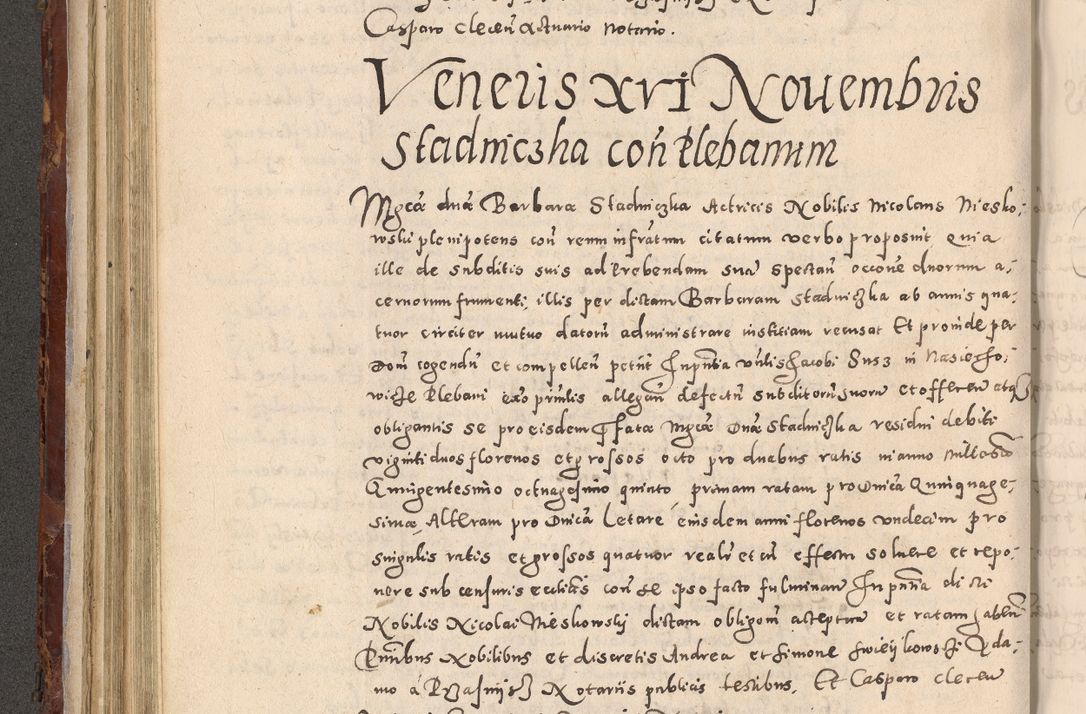 Casparo Cleceñ Actuario Notario.
Veneris XVI Nouembris
Stadniczka coñ Plebanum
Mgcæ dnæ Barbaræ Stadniczka Actricis Nobilis Nicolaus Niesko,
wski plenipotens coñ reum infratum citatum verbo proposuit quia
ille de subditis suis ad Trebendam sua spectañ occõne duorum a,
cernorum frumenti, illis per dictam Barbaram Stadniczka ab annis qua,
tuor circiter mutuo datorũ administrare iustitiam recusat Et proinde per
Dom̃ cogendũ et compelleñ petiit In pñtia vñlis Jacobi Susz in Nasiecho,
wicze Plebani eõ pñtialis allegañ defectũ subditorũ suorũ et offereñ atq
obligantis se pro eisdem Pfatæ Mgcæ Dnæ Stadniczka residui debiti
viginti duos florenos et grossos octo pro duabus ratis in anno Millesimo
Quingentesimo octuagesimo quinto, primam ratam pro Dnica Quinquage,
simæ, Alteram pro Dnica Letare eiusdem anni florenos vndecim pro
singulis ratis et grossos quatuor reali et cũ effectu soluere et repo,
nere sub censuris ecclicis coñ se ipso facto fulminañ In pñtia dicti
Nobilis Nicolai Nieskowskÿ dictam obligoñ acceptañ et ratam habeñ
Pñtibus Nobilibus et discretis Andrea et Simone Swieÿkowski Ada,
mo à Notariis publicis testibus, Et Casparo Cleceñ